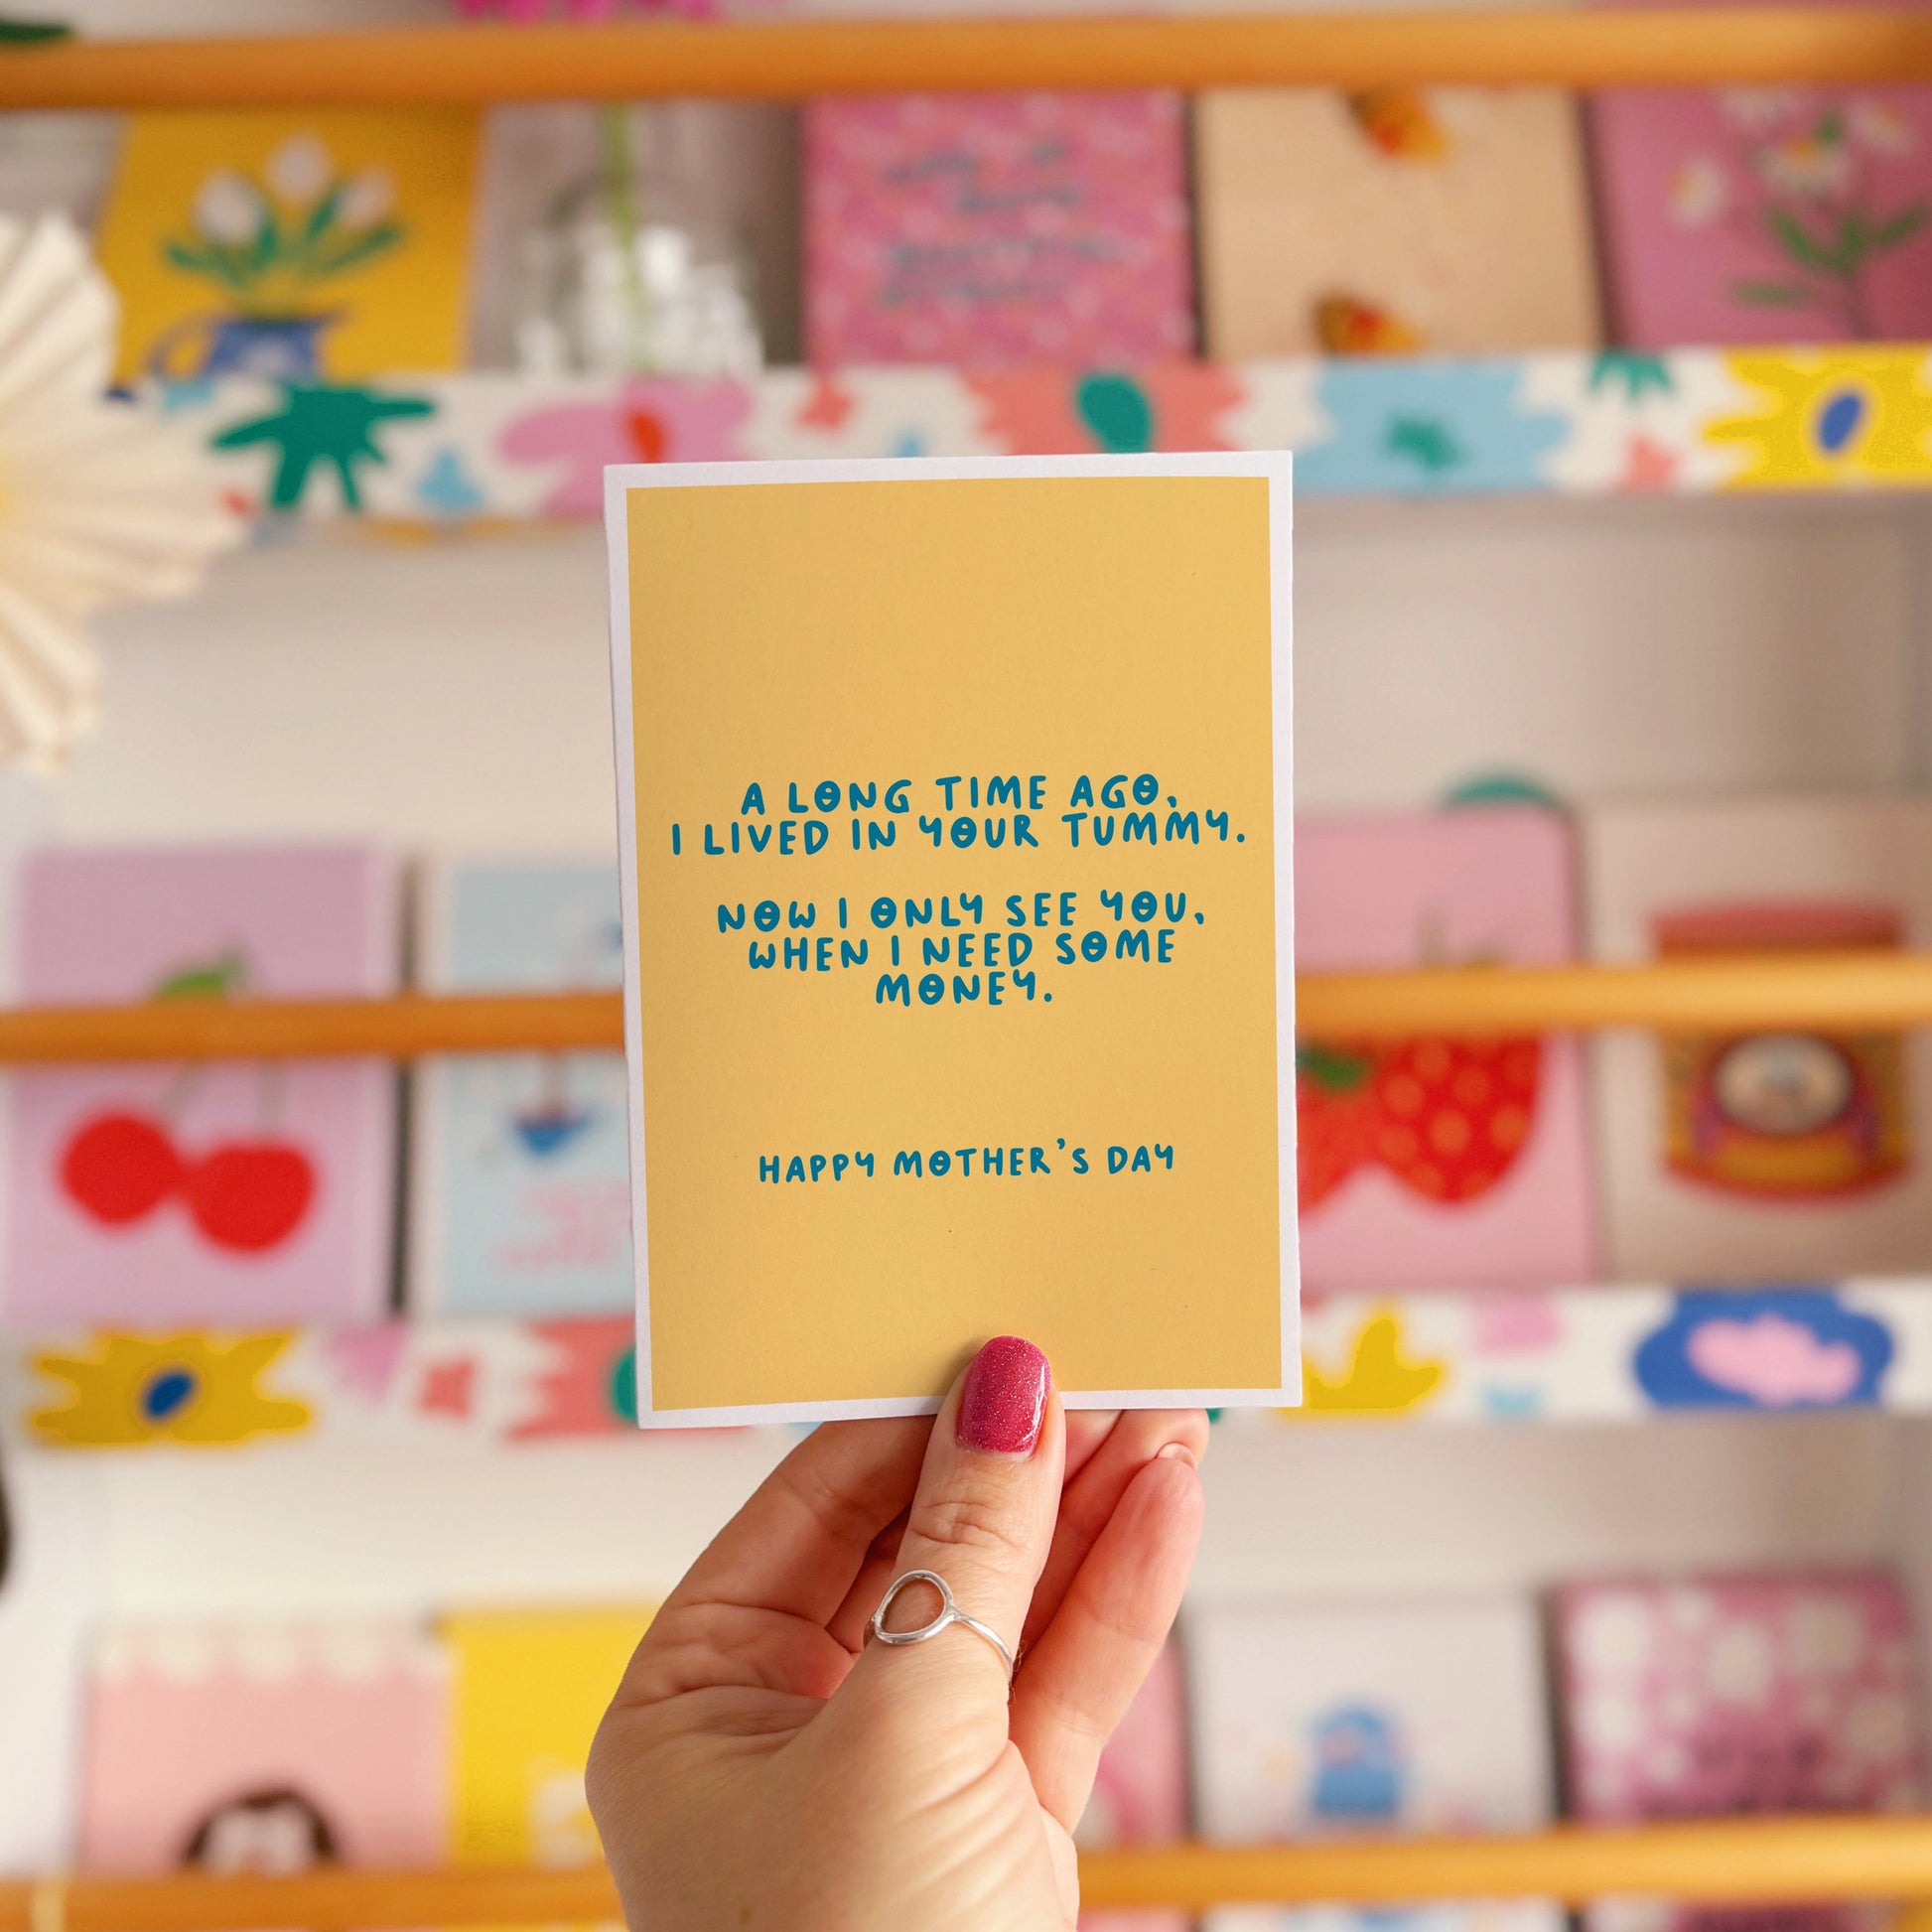 A LONG TIME AGO,
I LIVED IN YOUR TUMMY.
NOW I ONLY SEE YOU,
WHEN I NEED SOME
MONEY.
HAPPY MOTHER'S DAY